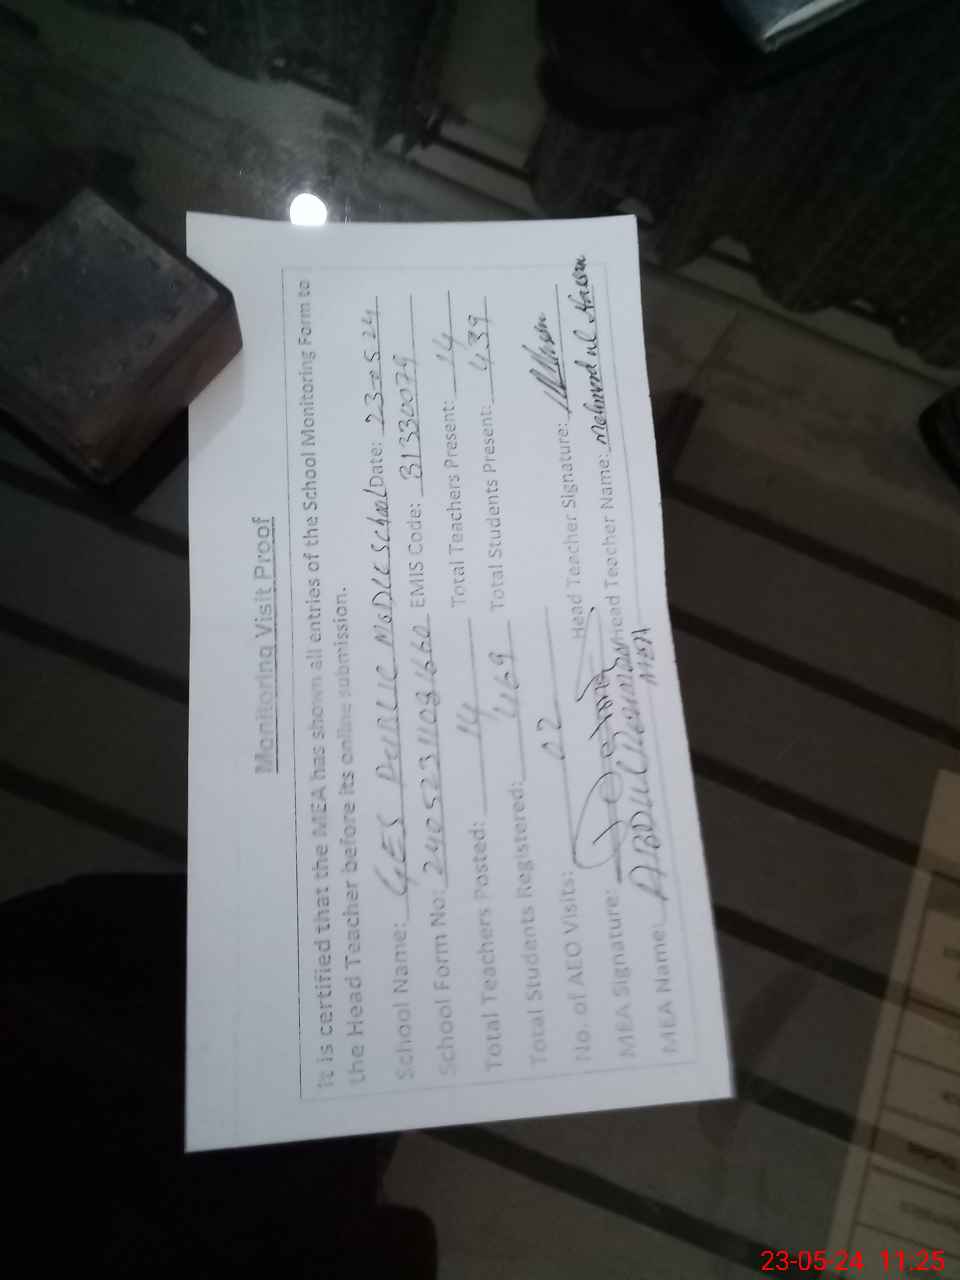 Monitoring Visit Proof
It is certified that the MEA has shown all entries of the School Monitoring Form to
the Head Teacher before its online submission.
School Name: GES PUBLIC MODLE SCHOOL Date: 23-05-24
School Form No: EMIS Code: 31330079
Total Teachers Posted: 14 Total Teachers Present: 14
Total Students Registered: 469 Total Students Present: 439
No. of AEO Visits: 02
MEA Signature: Head Teacher Signature:
MEA Name: ABDUL Head Teacher Name: Mehmood ul Hassan
MEA
23-05-24 11:25